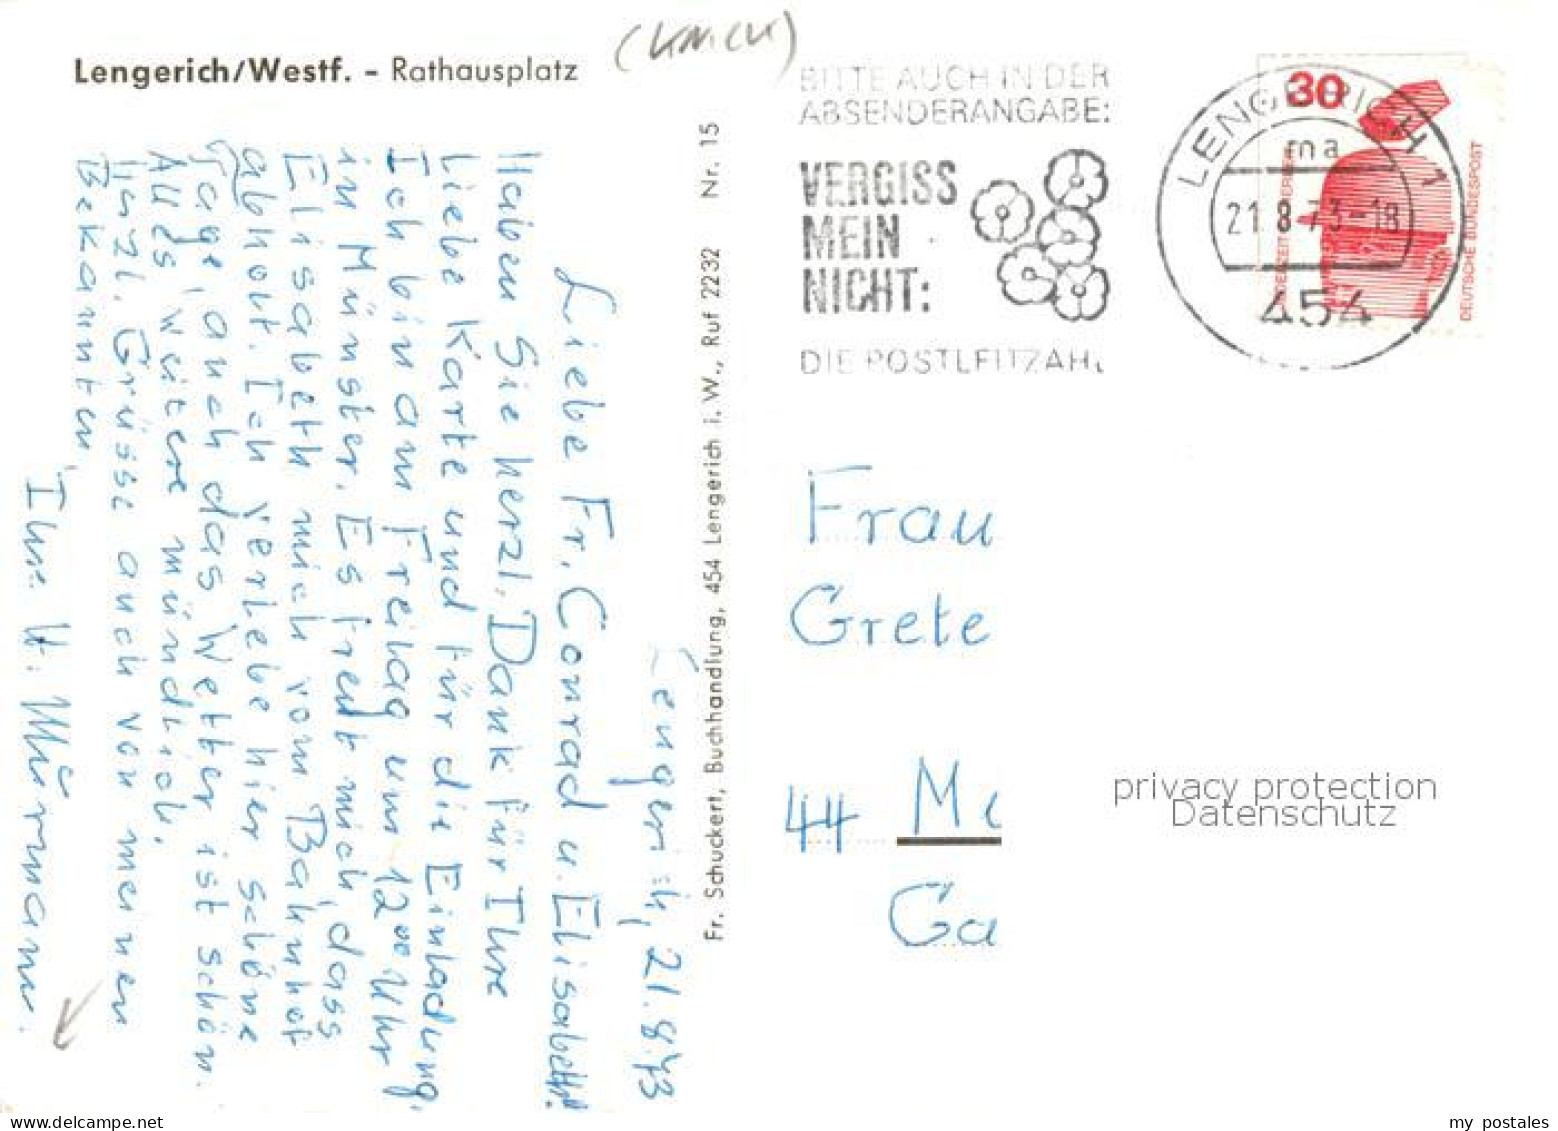 Lengerich/Westf. - Rathausplatz
BITTE AUCH IN DER
ABSENDERANGABE:
VERGISS
MEIN
NICHT:
DIE POSTLEITZAHL
LENGERICH 1
ma
21.8.73-18
454
30
DEUTSCHE BUNDESPOST
Fr. Schuckert, Buchhandlung, 454 Lengerich i. W., Ruf 2232 Nr. 15
Lengerich, 21.8.73
Liebe Fr. Conrad u. Elisabeth!
Haben Sie herzl. Dank für Ihre
liebe Karte und für die Einladung.
Ich bin am Freitag um 12°° Uhr
in Münster. Es freut mich, dass
Elisabeth mich vom Bahnhof
abholt. Ich verlebe hier schöne
Tage, auch das Wetter ist schön.
Alles weitere mündlich.
Herzl. Grüsse auch von meinen
Bekannten,
Ihre
Frau
Grete
44 Mü
Ga
privacy protection
Datenschutz
my postales